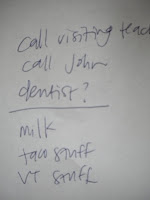 call visiting teac
call John
dentist?
milk
taco stuff
VT stuff